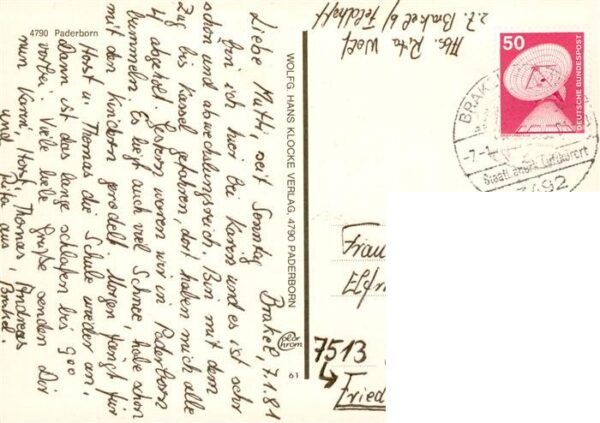 4790 Paderborn
Brakel, 7.1.81
Liebe Mutti, seit Sonntag
bin ich hier bei Karin und es ist sehr
schön und abwechslungsreich. Bin mit dem
Zug bis Kassel gefahren, dort haben mich alle
4 abgeholt. Gestern waren wir in Paderborn
bummeln. Es liegt auch viel Schnee, habe schon
mit den Kindern gerodelt. Morgen fängt für
Horst u. Thomas die Schule wieder an.
Dann ist das lange schlafen bis 9oo
vorbei. Viele liebe Grüße senden Dir
nun Karin, Horst, Thomas, Andreas
und Rita aus Brakel.
WOLFG. HANS KLOCKE VERLAG, 4790 PADERBORN
Color
chrom
61
Abs. Rita Wolf
z.Z. Brakel b/ Feldhoff
50
DEUTSCHE BUNDESPOST
BRAKEL
-7.-1
Staatl. anerk. Luftkurort
3492
Frau
Elfr
7513
Fried